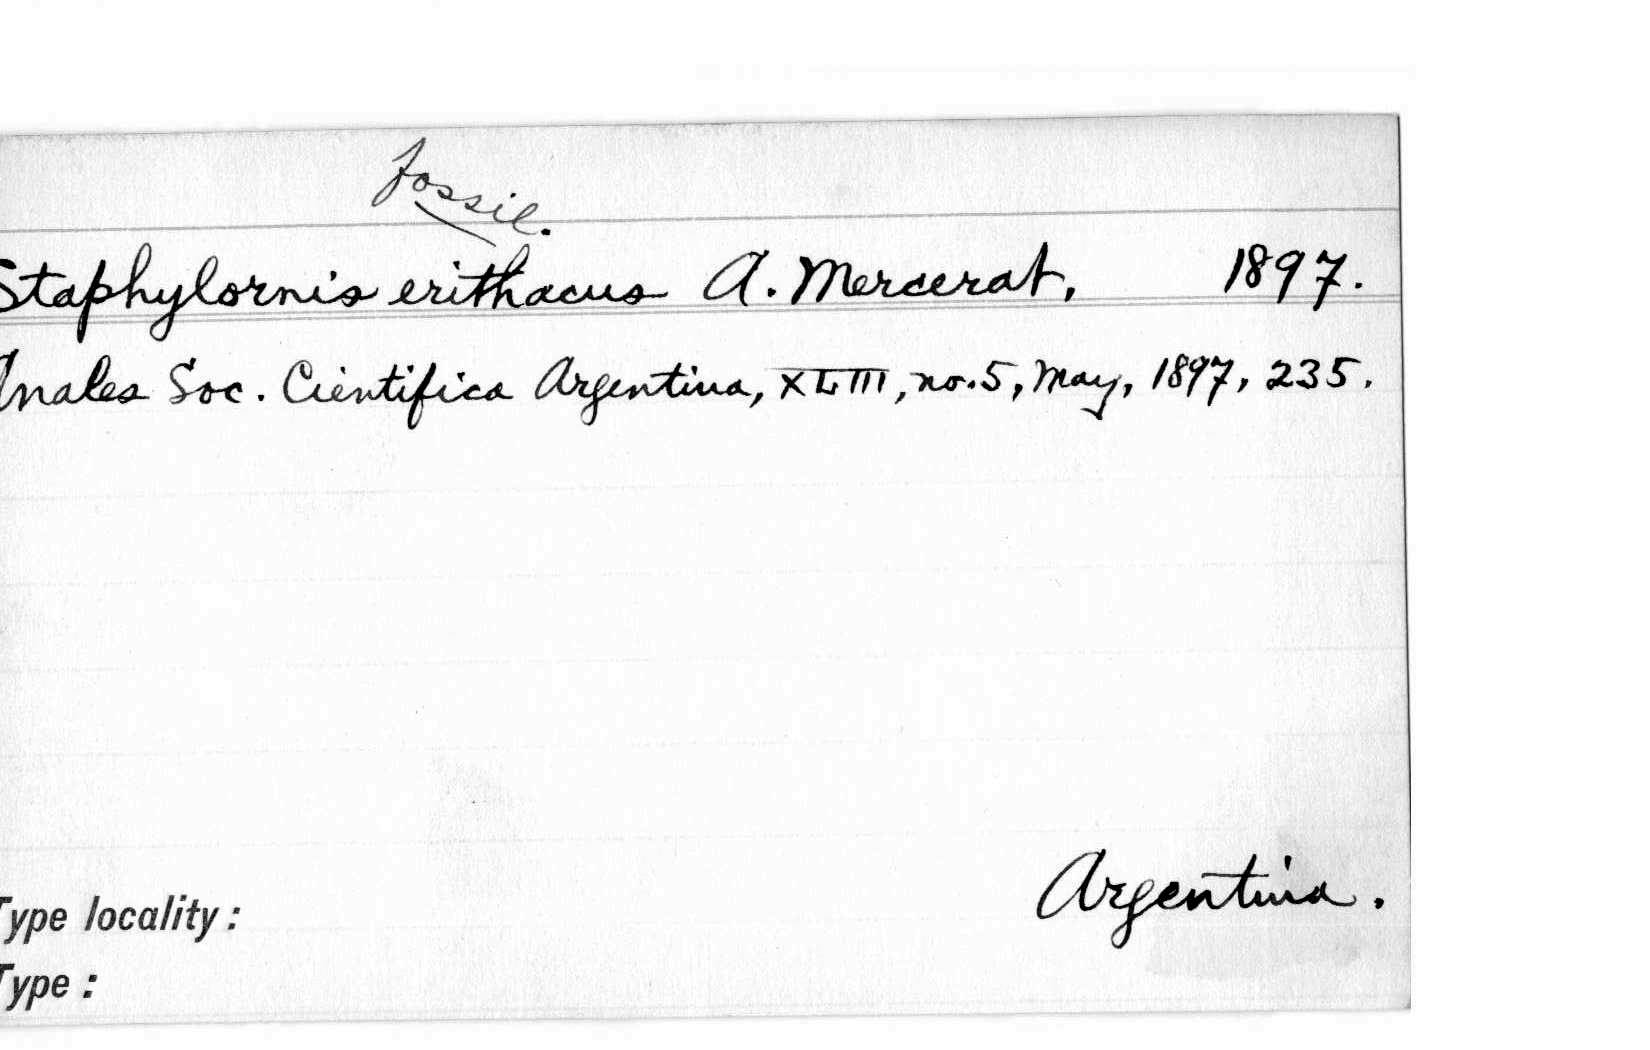 Fossil.
Staphylornis erithacus A. Mercerat, 1897.
Anales Soc. Cientifica Argentina, XLIII, no. 5, May, 1897, 235.
Argentina.
Type locality:
Type: